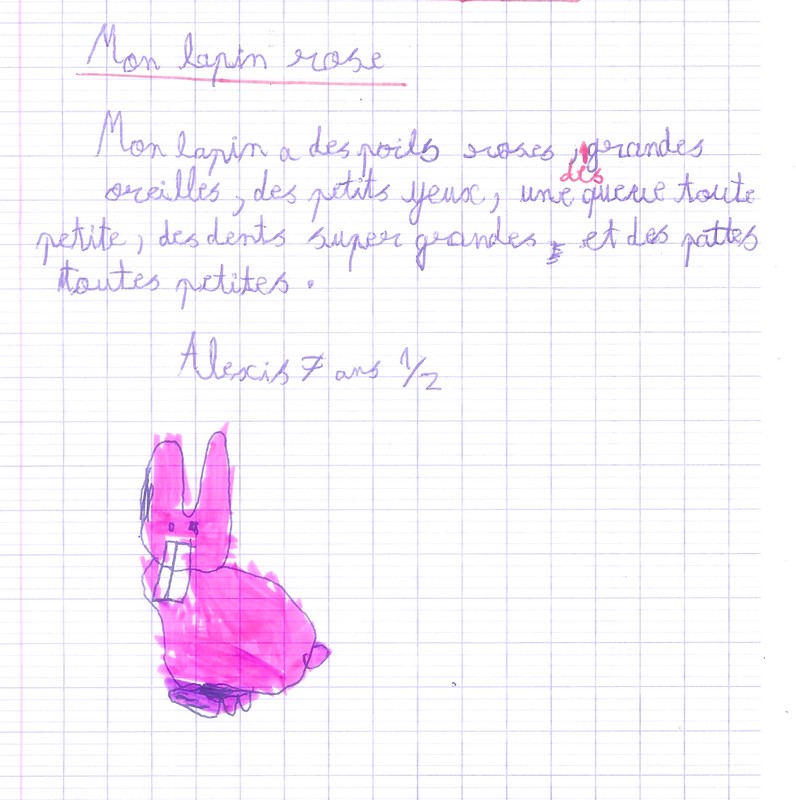 Mon lapin rose
Mon lapin a des poils roses, grandes
des
oreilles, des petits yeux, une queue toute
petite, des dents super grandes, et des pattes
toutes petites.
Alexis 7 ans 1/2